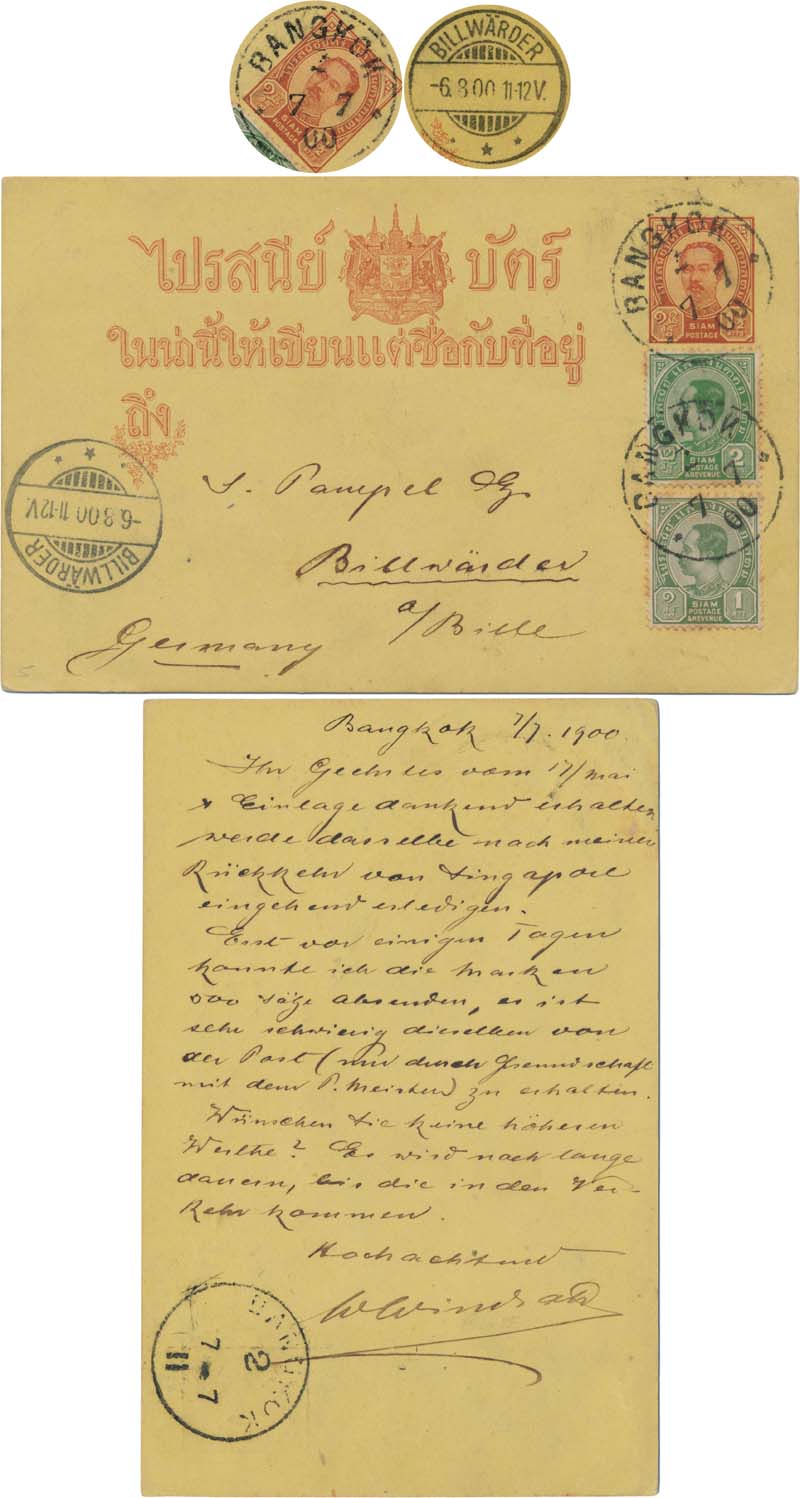 BANGKOK
7 7
00
BILLWÄRDER
-6.8.00 11-12V.
ไปรสนีย์ บัตร์
ในน่านี้ให้เขียนแต่ชื่อกับที่อยู่
ถึง
SIAM
POSTAGE
BANGKOK
7 7
00
2
SIAM
POSTAGE
& REVENUE
BANGKOK
7 7
00
1
SIAM
POSTAGE
& REVENUE
BILLWÄRDER
-6.8.00 11-12V.
S. Pampel
Billwärder
a/Bille
Germany
Bangkok 7/7. 1900.
Ihr Geehrtes vom 17/mai
& Einlage dankend erhalten
werde dasselbe nach meiner
Rückkehr von Singapore
eingehend erledigen.
Erst vor einigen Tagen
konnte ich die Marken
500 säze absenden, es ist
sehr schwierig dieselben von
der Post (nur durch Freundschaft
mit dem P. Meister) zu erhalten.
Wünschen Sie keine höheren
Werthe? Es wird noch lange
dauern, bis die in den Ver-
kehr kommen.
Hochachtend
BANGKOK
2
7 7
11